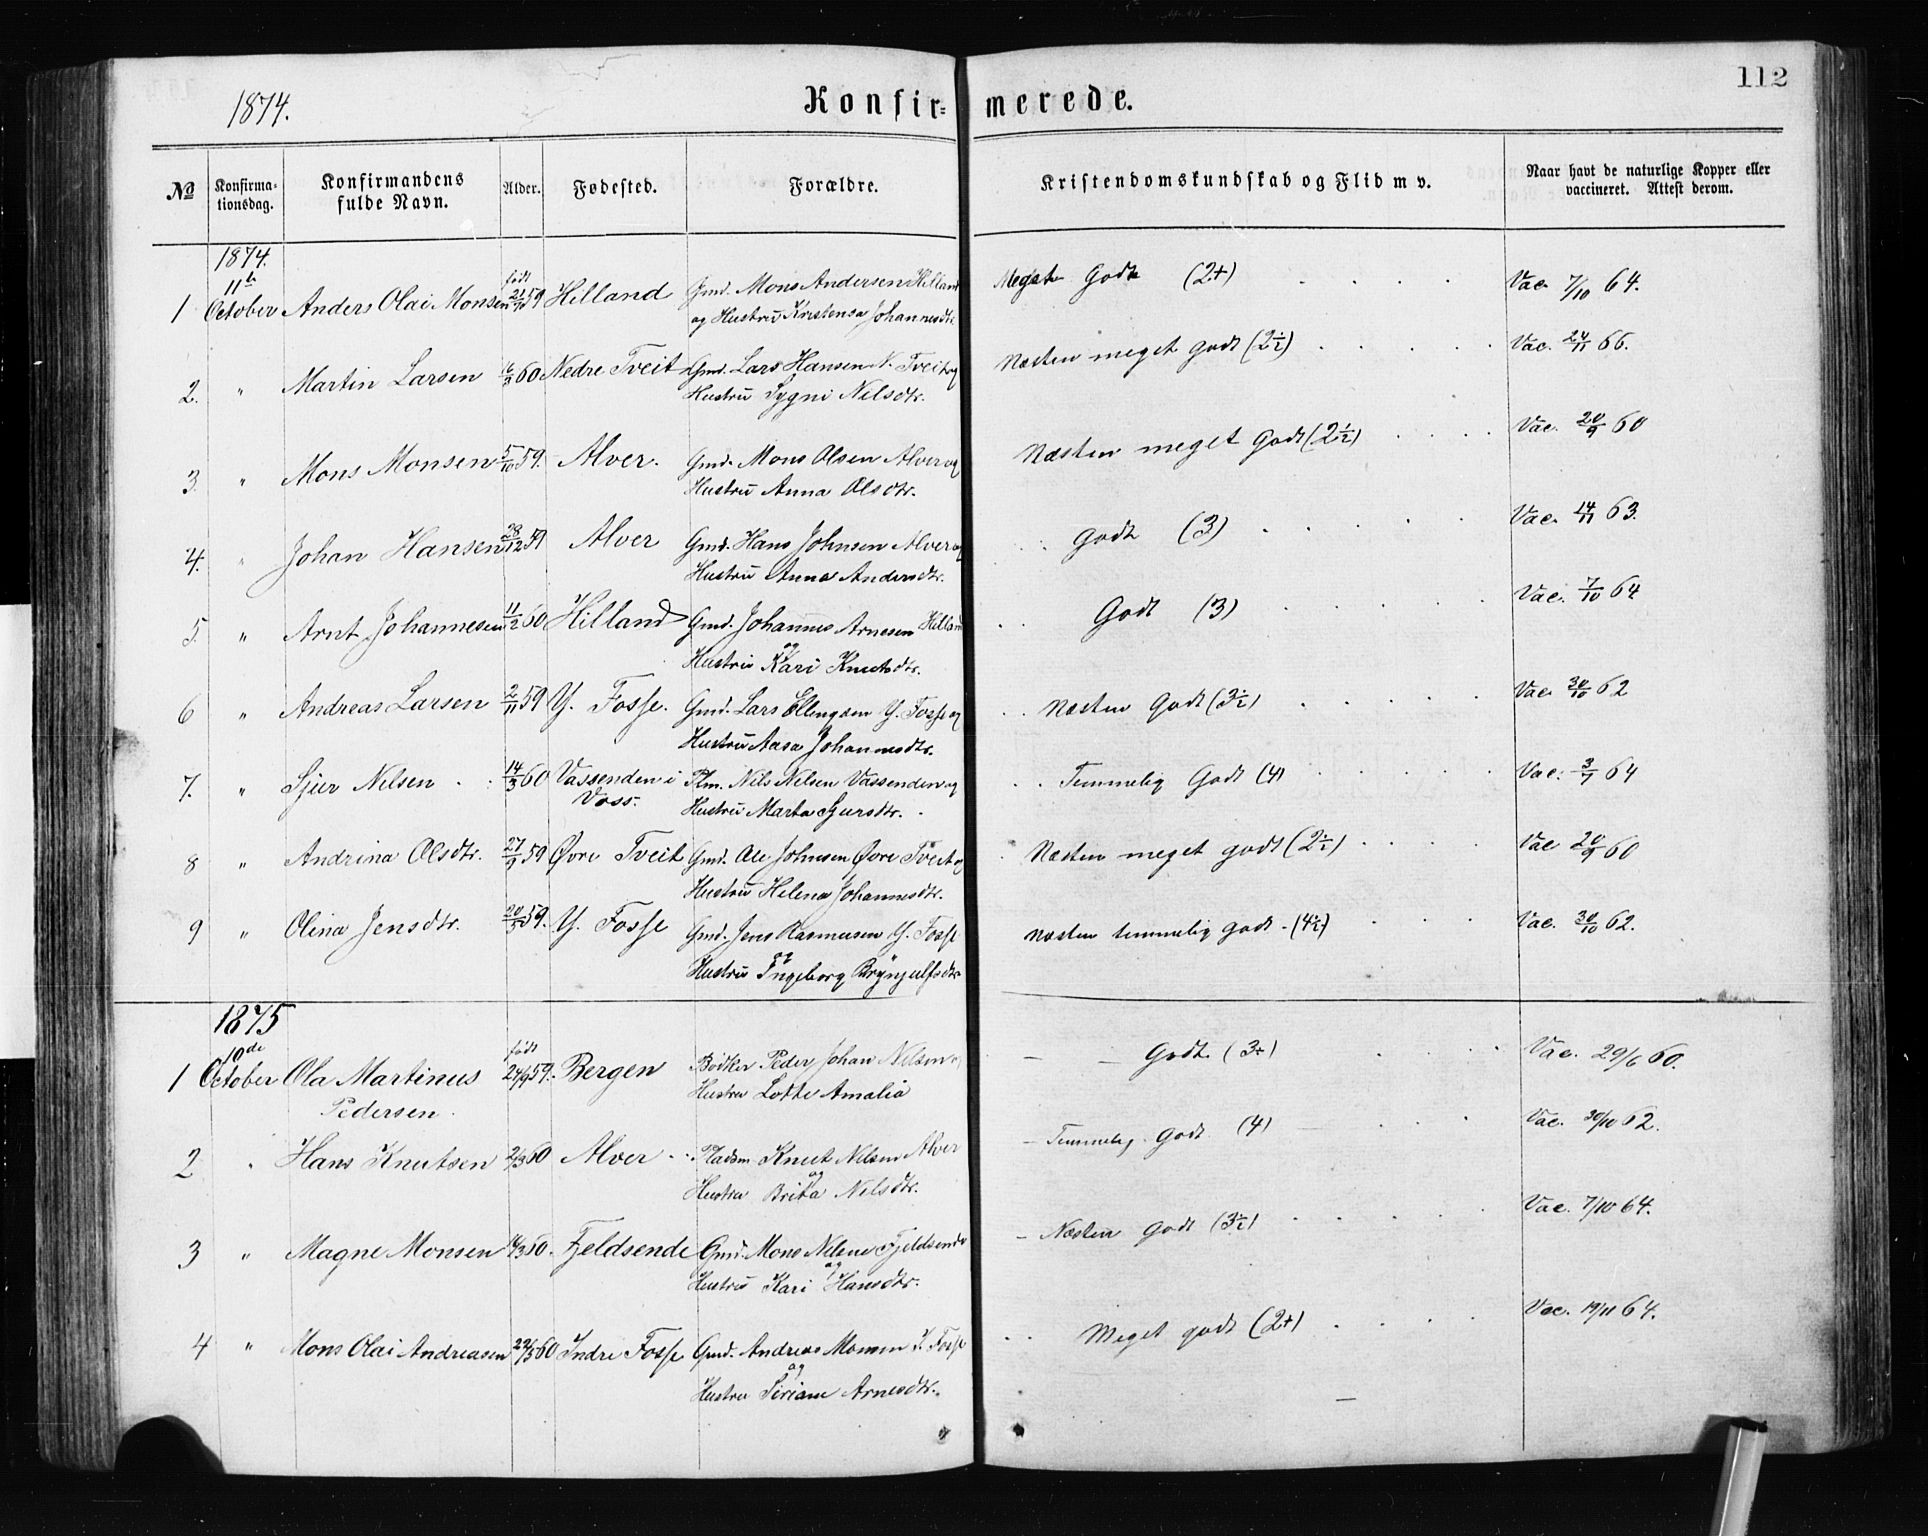 112
1874.
Konfirmerede.
№ Konfirmationsdag. Konfirmandens fulde Navn. Alder. Fødested. Forældre. Kristendomskundskab og Flid m v. Naar havt de naturlige Kopper eller vaccineret. Attest derom.
1874.
11te født
1 October Anders Olai Monsen 59 Hilland Gmd. Mons Andersen Hilland Meget Godt (2+) Vac. 7/10 64.
og Hustru Kristensa Johannesdtr
2. " Martin Larsen 60 Nedre Tveit Gmd. Lars Hansen N. Tveit og Næsten meget godt (2½) Vac. 24/11 66.
Hustru Sygni Nilsdtr.
3. " Mons Monsen 5/10 59. Alver. Gmd. Mons Olsen Alver og Næsten meget Godt (2½) Vac. 20/9 60
Hustru Anna Olsdtr.
4. " Johan Hansen 28/12 59 Alver Gmd. Hans Johnsen Alver og Godt (3) Vac. 14/11 63.
Hustru Anna Andersdtr.
5. " Arnt Johannesen 11/2 60 Hilland Gmd. Johannes Arnesen Hilland Godt (3) Vac. 7/10 64
og
Hustru Kari Knutsdtr.
6 " Andreas Larsen 2/11 59 Y. Fosse. Gmd. Lars Ellingsen Y. Fosse og Næsten Godt (3½) Vac. 30/10 62
Hustru Aasa Johannesdtr.
7. " Sjur Nilsen 14/3 60 Vassenden i Plm. Nils Nilsen Vassenden og Temmelig Godt (4) Vac. 64
Voss. Hustru Marta Sjursdtr.
8 " Andrina Olsdtr. 27/9 59 Øvre Tveit Gmd. Ole Johnsen Øvre Tveit og Næsten meget godt (2½) Vac 20/9 60
Hustru Helena Johannesdtr.
9 " Olina Jensdtr. 59. Y. Fosse Gmd. Jens Rasmusen Y. Fosse Næsten temmelig godt (4½) Vac. 30/10 62.
og
Hustru Ingeborg Brynjulfsdtr
1875
10de født
1 October Ola Martinus 24/9 59. Bergen Bødker Peder Johan Nilsen og Godt (3+) Vac. 29/6 60.
Pedersen. Hustru Lotte Amalia
2 " Hans Knutsen 2/3 60 Alver Pladsm. Knut Nilsen Alver Temmelig Godt (4) Vac. 30/10 62.
og
Hustru Brita Nilsdtr.
3 " Magne Monsen 60. Fjeldsende Gmd. Mons Nilsen Fjeldsende Næsten Godt (3½) Vac. 7/10 64.
og
Hustru Kari Hansdtr.
4 " Mons Olai Andreasen 60 Indre Fosse Gmd. Andreas Monsen I. Fosse Meget godt (2+) Vac. 19/11 64.
og
Hustru Siriane Arnesdtr.